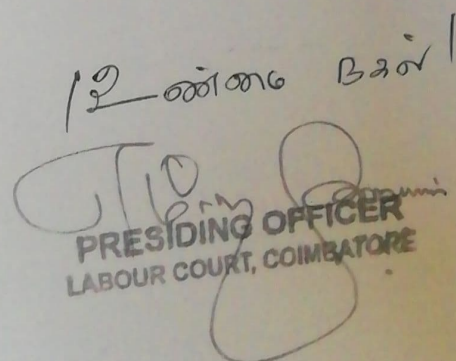 /உண்மை நகல்/
PRESIDING OFFICER
LABOUR COURT, COIMBATORE